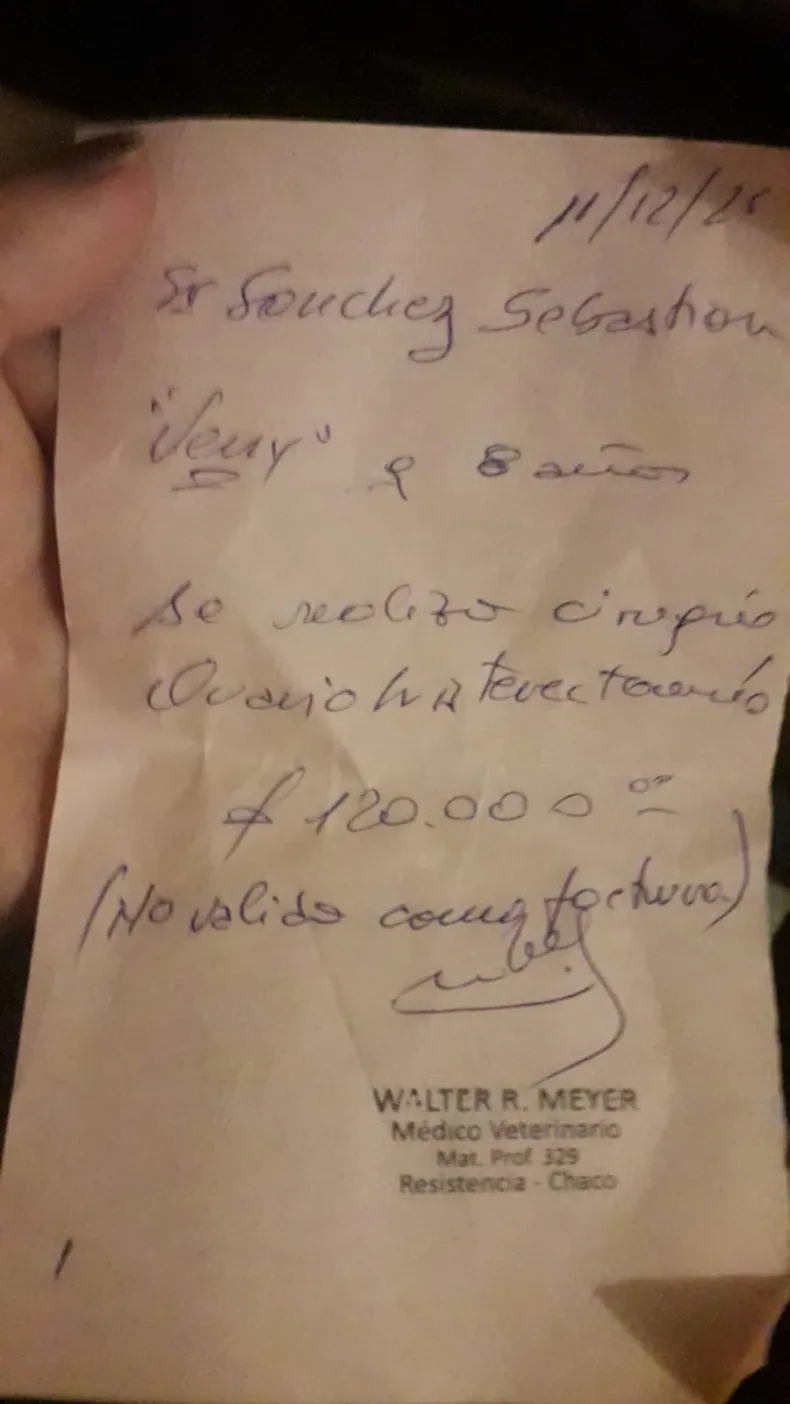 11/12/25
Sr Sanchez Sebastian
"Veny" ♀ 8 años
Se realizo cirugía
Ovariohisterectomía
$ 120.000 00
(No valido como factura)
WALTER R. MEYER
Médico Veterinario
Mat. Prof 329
Resistencia - Chaco